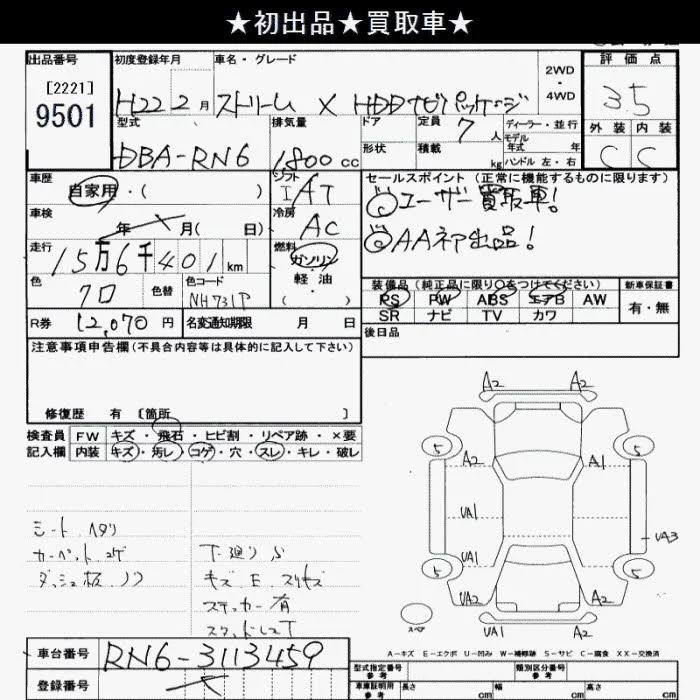 ★初出品★買取車★
出品番号 初度登録年月 車名・グレード 2WD・4WD 評価点
[2221]
9501
H22 2月 ストリーム X HDDナビパッケージ 3.5
型式 排気量 ドア 定員 7人 ディーラー・並行 外装 内装
モデル年式 年
DBA-RN6 1800cc 形状 積載 kg ハンドル 左・右 C C
車歴 シフト セールスポイント (正常に機能するものに限ります)
自家用・( ) I AT ◎ユーザー買取車!
車検 冷房
年 月( 日) AC ◎AA初出品!
走行 燃料
15万6千401km ガソリン・軽油・( )
装備品(純正品に限り〇をつけてください) 新車保証書
色 色替 色コード
クロ NH731P PS PW ABS エアB AW 有・無
SR ナビ TV カワ
R券 12,070円 名変通知期限 月 日
後日品
注意事項申告欄(不具合内容等は具体的に記入して下さい)
修復歴 有 〔箇所 〕
検査員 FW キズ・飛石・ヒビ割・リペア跡・×要
記入欄 内装 キズ・汚レ・コゲ・穴・スレ・キレ・破レ
シート ヘタリ
カーペット コゲ 下廻り S
ダッシュ板 ノリ キズ E スリキズ
ステッカー有
A2 A2
5 5
A2 A1
UA1
UA3
UA1
5 5
UA2 A2
スペア UA1 A2
A-キズ E-エクボ U-凹み W-補修跡 S-サビ C-腐食 XX-交換済
車台番号 RN6-3113459
登録番号
型式指定番号 参考 類別区分番号 参考
車庫証明用 参考 長さ cm 幅 cm 高さ cm